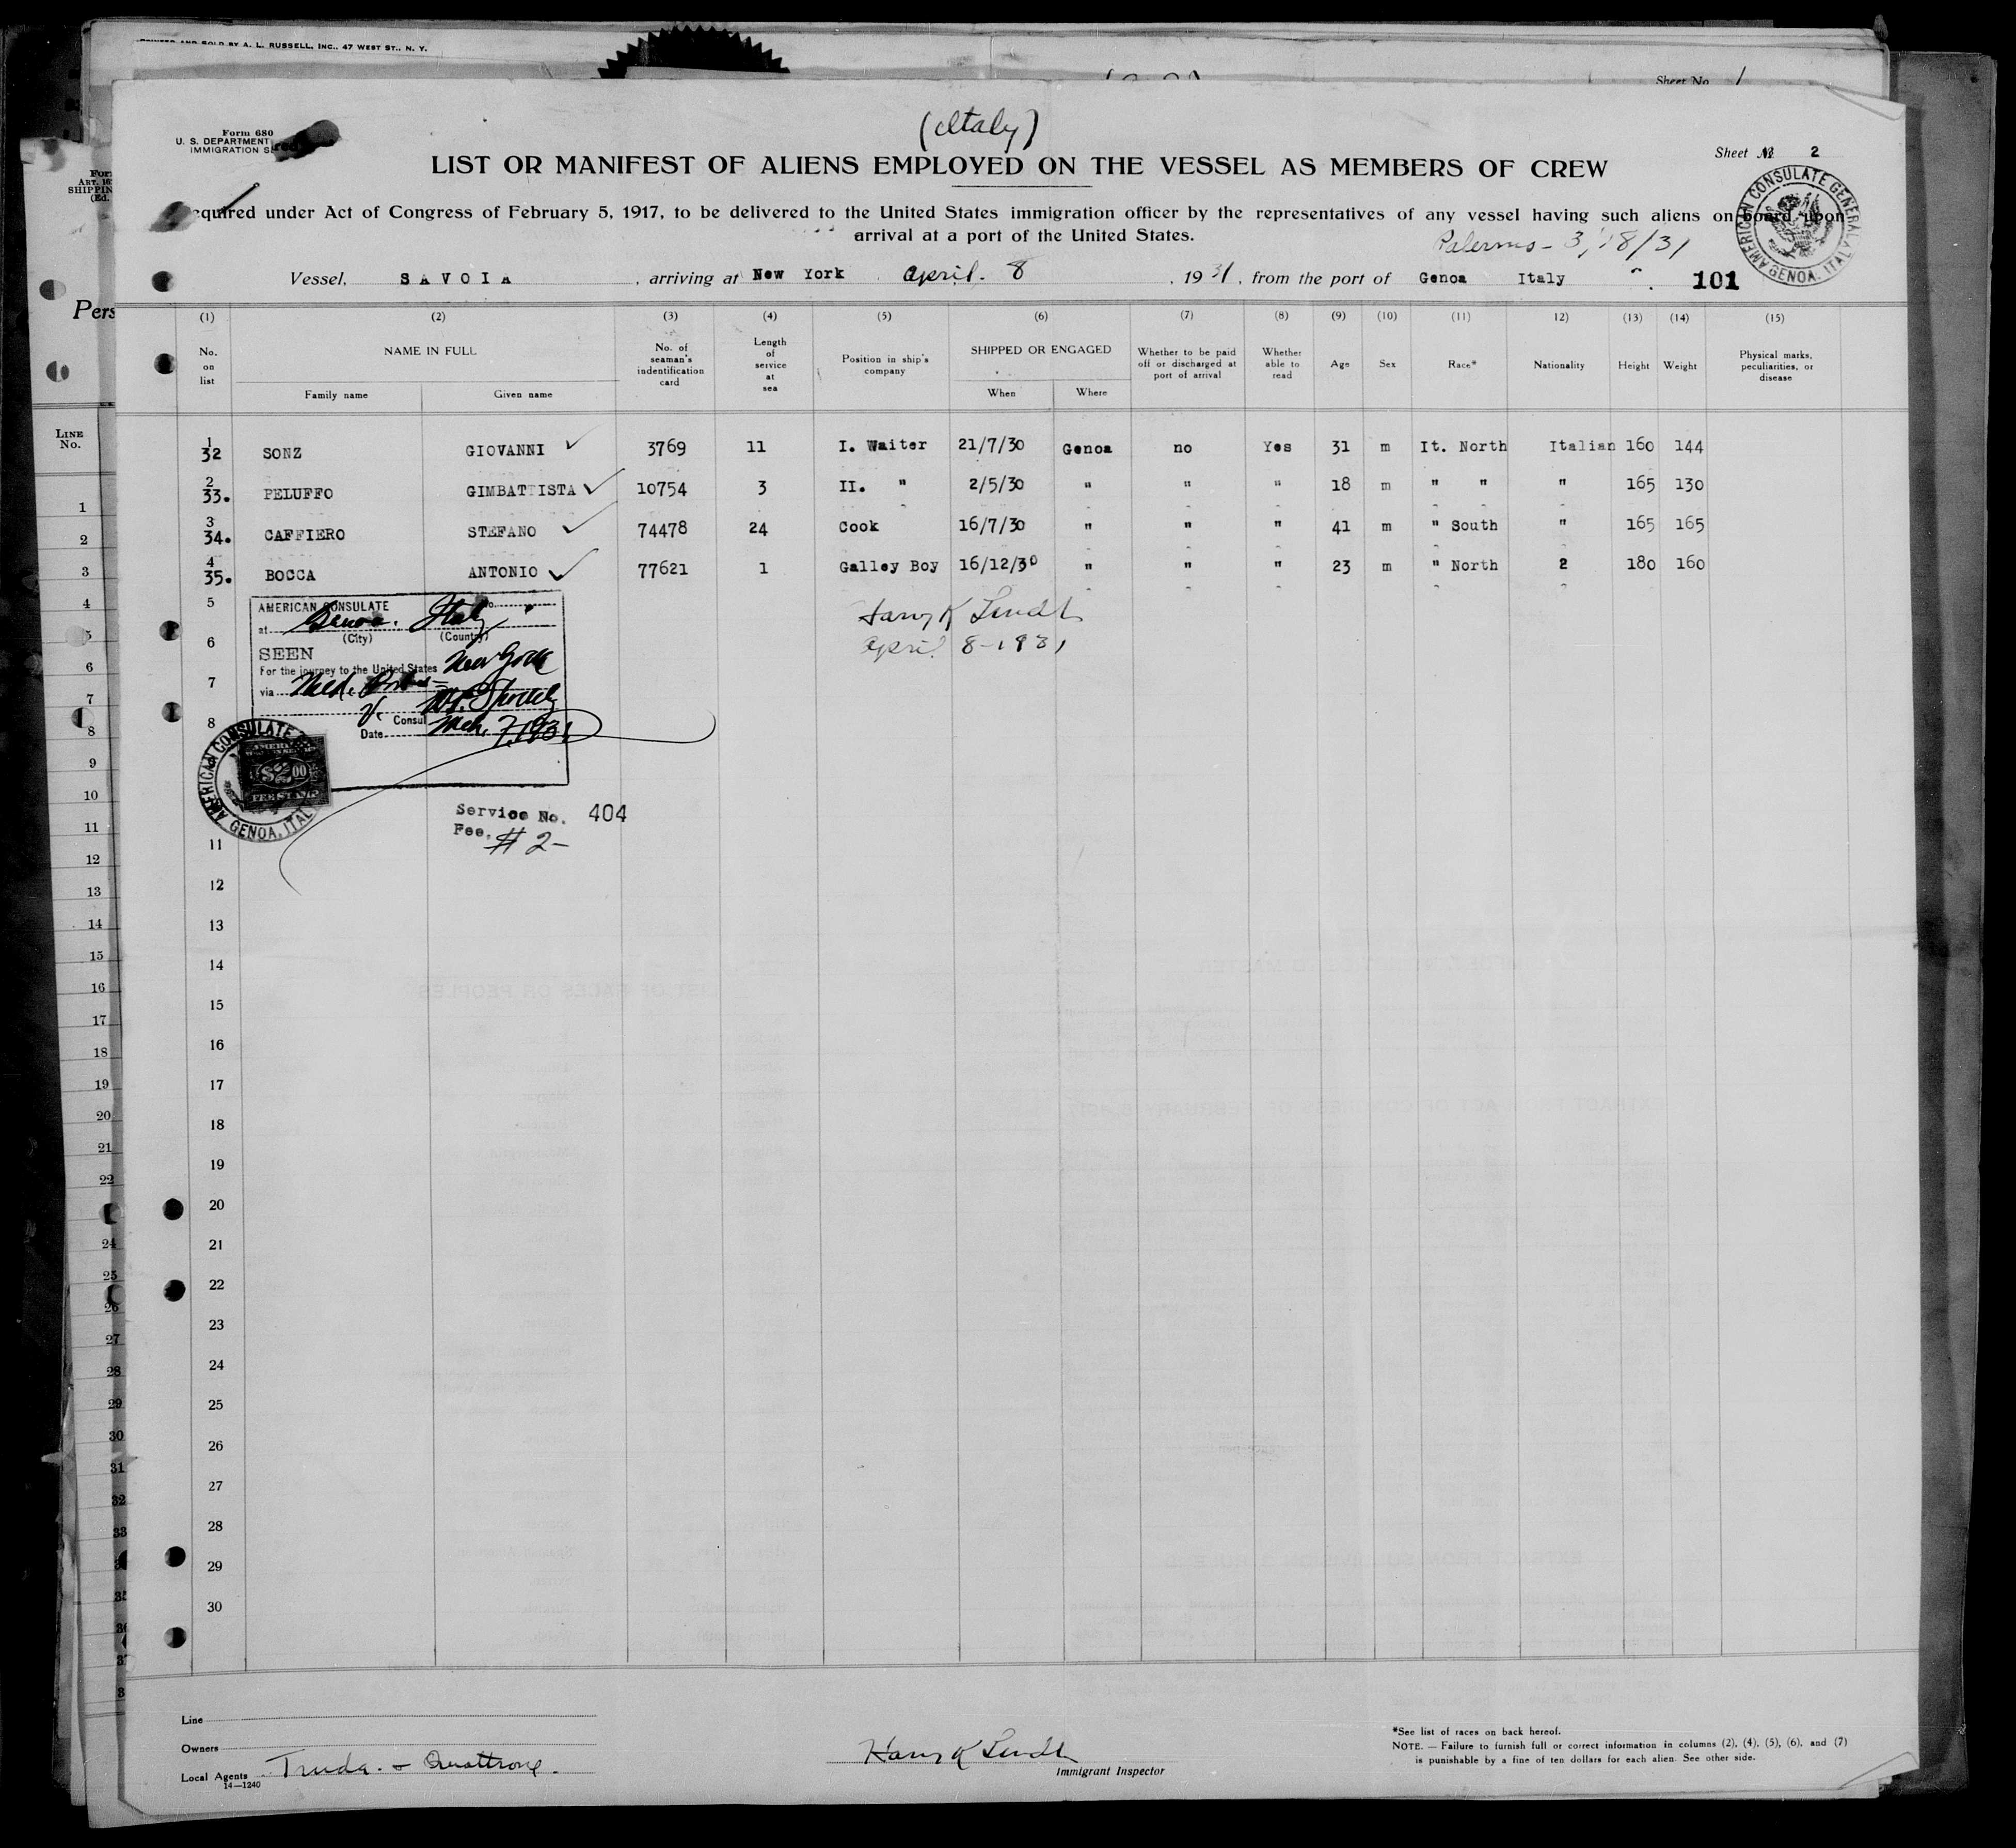 PRINTED AND SOLD BY A. L. RUSSELL, INC., 47 WEST ST., N. Y.
Sheet No. 1
(Italy)
Form 680
U. S. DEPARTMENT
IMMIGRATION
Sheet No. 2
LIST OR MANIFEST OF ALIENS EMPLOYED ON THE VESSEL AS MEMBERS OF CREW
equired under Act of Congress of February 5, 1917, to be delivered to the United States immigration officer by the representatives of any vessel having such aliens on board upon
arrival at a port of the United States.
Palermo - 3/18/31
AMERICAN CONSULATE GENERAL GENOA, ITALY
Vessel, SAVOIA , arriving at New York April. 8 , 19 31 , from the port of Genoa Italy 101
(1) (2) (3) (4) (5) (6) (7) (8) (9) (10) (11) 12) (13) (14) (15)
No. on list NAME IN FULL No. of seaman's indentification card Length of service at sea Position in ship's company SHIPPED OR ENGAGED Whether to be paid off or discharged at port of arrival Whether able to read Age Sex Race* Nationality Height Weight Physical marks, peculiarities, or disease
Family name Given name When Where
1 32 SONZ GIOVANNI ✓ 3769 11 I. Waiter 21/7/30 Genoa no Yes 31 m It. North Italian 160 144
2 33. PELUFFO GIMBATTISTA ✓ 10754 3 II. " 2/5/30 " " " 18 m " " " 165 130
3 34. CAFFIERO STEFANO ✓ 74478 24 Cook 16/7/30 " " " 41 m " South " 165 165
4 35. BOCCA ANTONIO ✓ 77621 1 Galley Boy 16/12/30 " " " 23 m " North 2 180 160
5
6
7
8
AMERICAN CONSULATE No.
at Genoa. Italy
(City) (Country)
SEEN
For the journey to the United States New York
via
Consul
Date Mch. 7, 1931
Harry K Lindt
April 8-1931
AMERICAN CONSULATE GENOA, ITALY
$2.00
FEE STAMP
Service No. 404
Fee, # 2-
11
12
13
14
15
16
17
18
19
20
21
22
23
24
25
26
27
28
29
30
Line
Owners
Local Agents Truda. & Quattrone.
14—1240
Harry K Lindt
Immigrant Inspector
*See list of races on back hereof.
NOTE. — Failure to furnish full or correct information in columns (2), (4), (5), (6), and (7)
is punishable by a fine of ten dollars for each alien. See other side.
Pers
LINE
No.
1
2
3
4
5
6
7
8
9
10
11
12
13
14
15
16
17
18
19
20
21
22
24
25
26
27
28
29
30
31
32
33